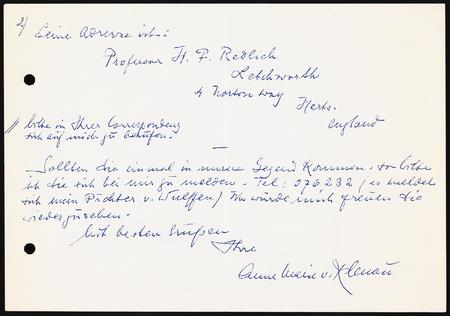 2) Seine Adresse ist:
Professor H. F. Redlich
Letchworth
4 Norton Way
Herts.
England
// bitte in Ihrer Correspondenz
sich auf mich zu berufen.
—
Sollten Sie einmal in unsere Gegend kommen - so bitte
ich Sie sich bei mir zu melden. - Tel: 076232 (es meldet
sich mein Pächter v. Wulffen) Ich würde mich freuen Sie
wiederzusehen.
Mit besten Grüßen
Ihre
Anne Marie v. Klenau